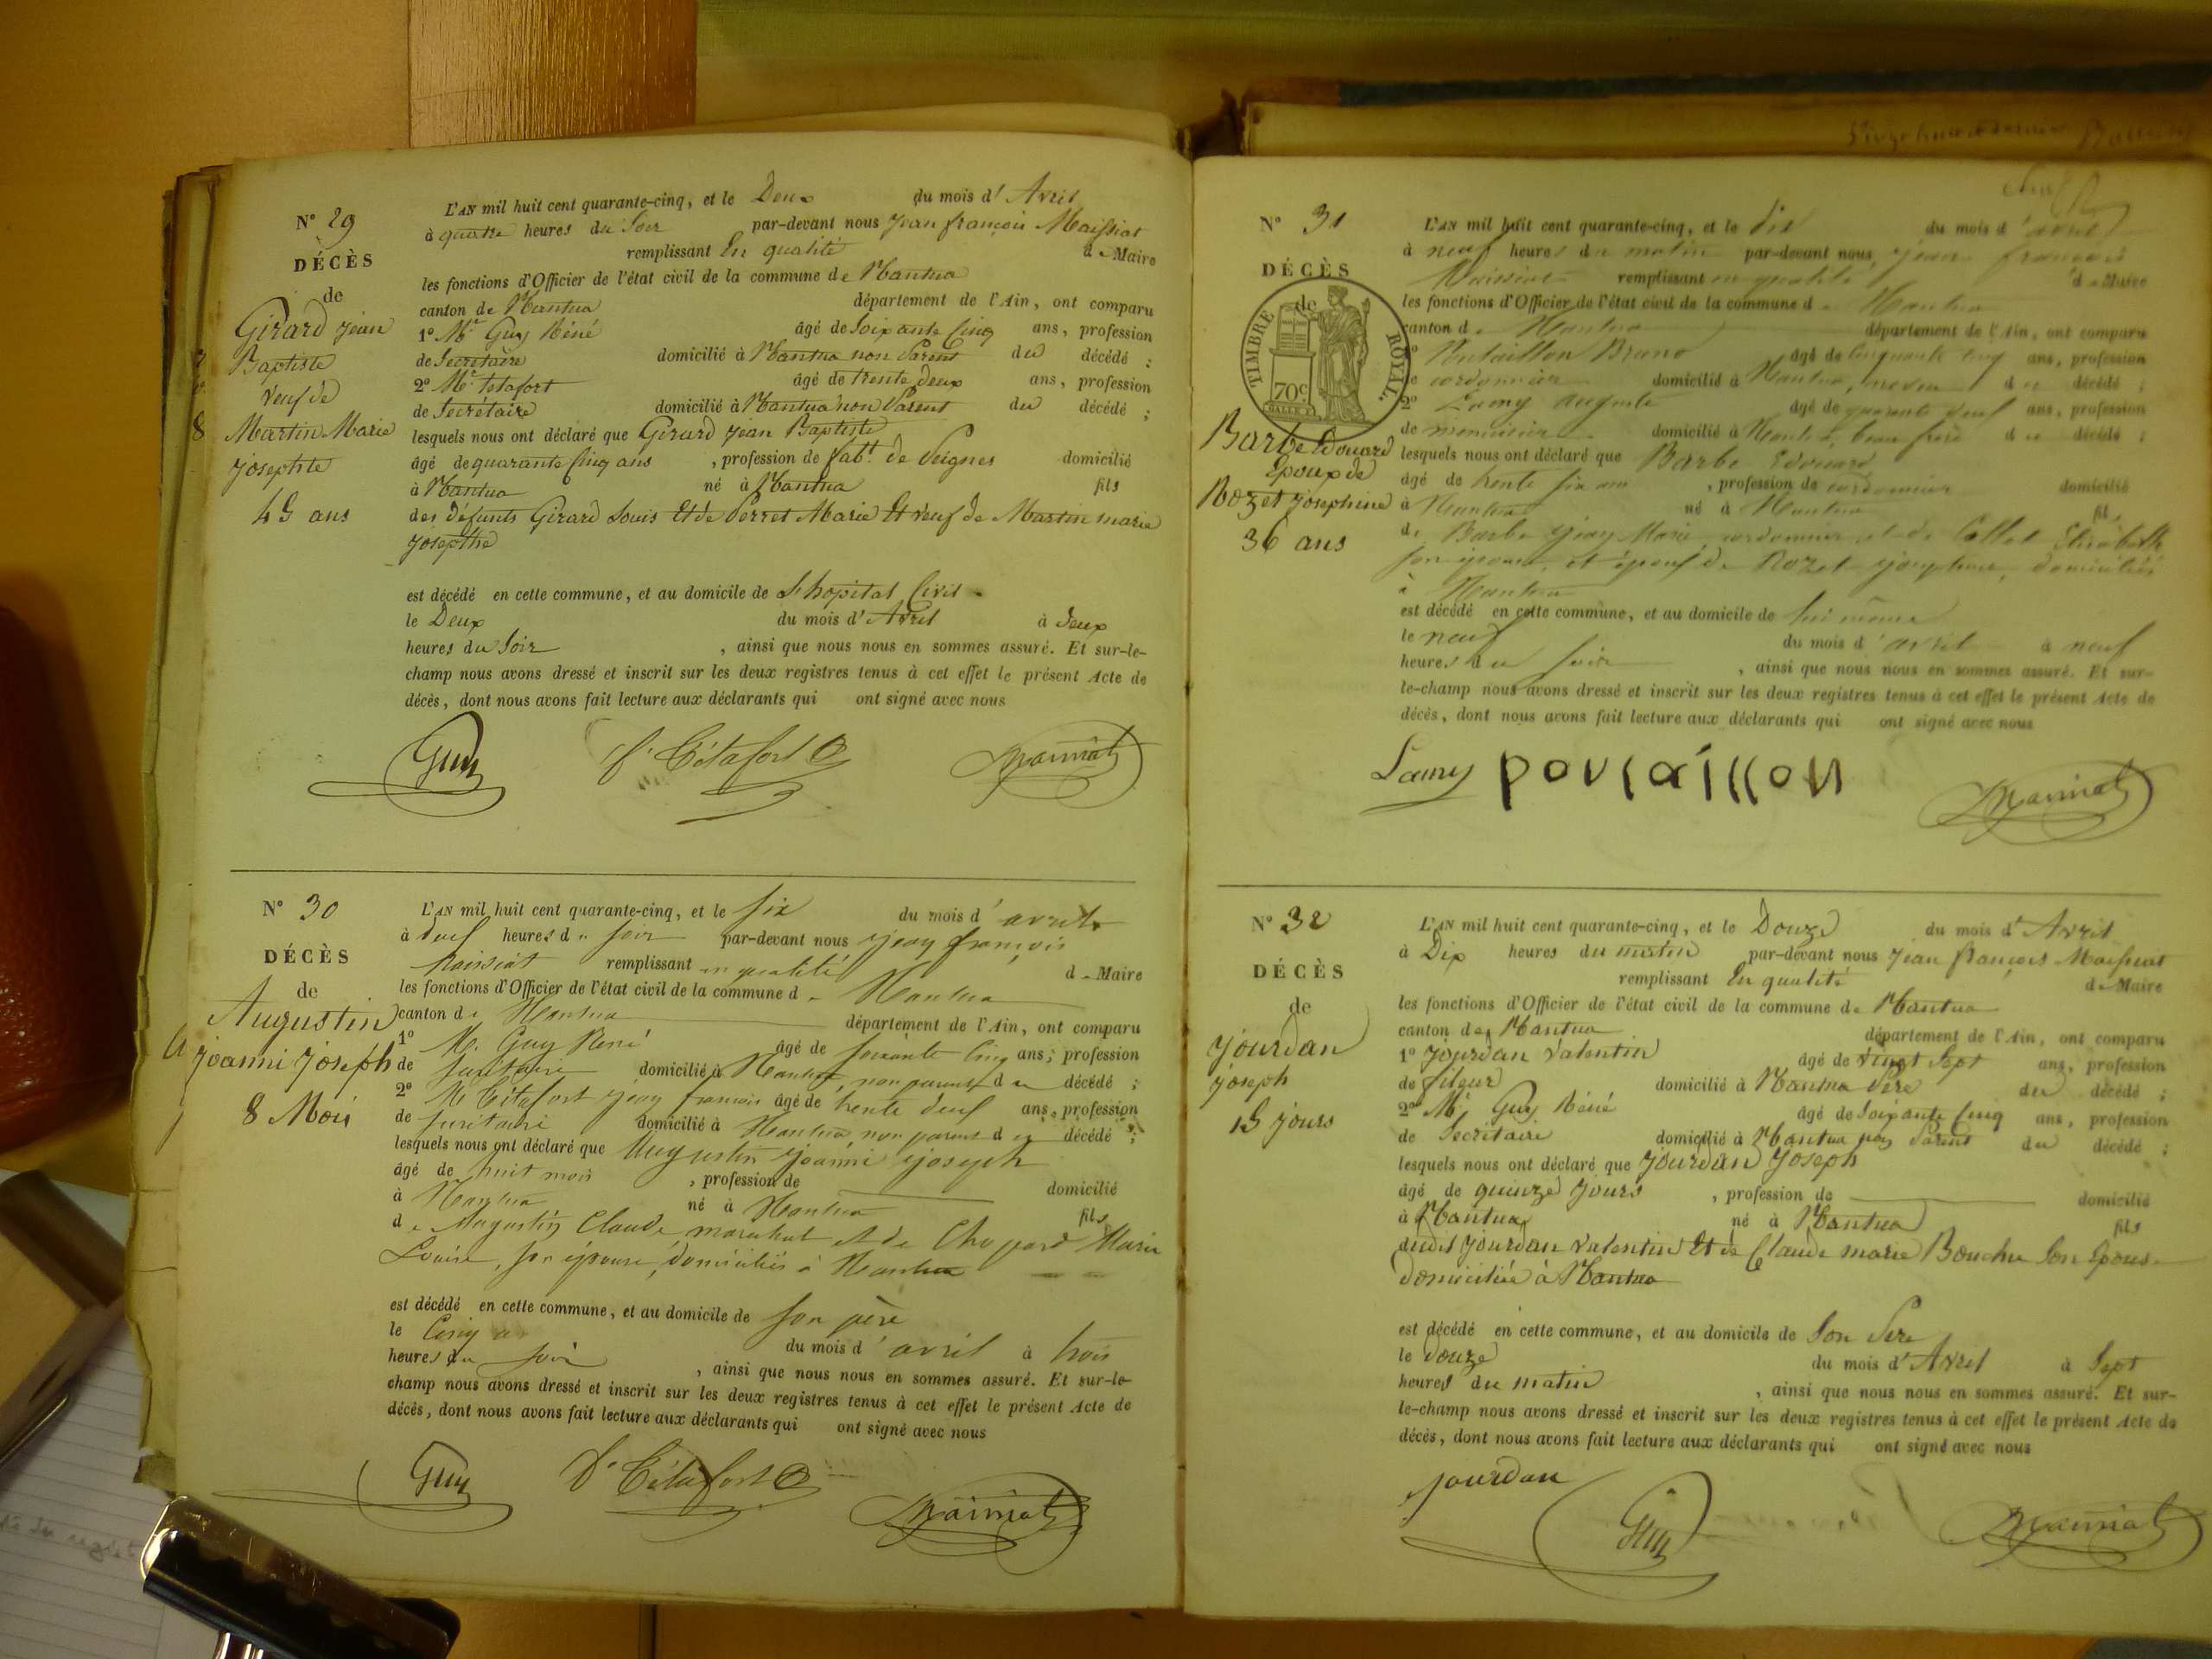 N° 29
DÉCÈS
de
Girard Jean
Baptiste
veuf de
Martin Marie
Josephte
45 ans
L'AN mil huit cent quarante-cinq, et le Deux du mois d' Avril
à quatre heures du Soir par-devant nous Jean françois Maissiat
remplissant En qualité de Maire
les fonctions d'Officier de l'état civil de la commune de Nantua
canton de Nantua département de l'Ain, ont comparu
1° Mr Guy Réné âgé de Soixante Cinq ans, profession
de Secrétaire domicilié à Nantua non Parent du décédé ;
2° Mr tétafort âgé de trente deux ans, profession
de Secrétaire domicilié à Nantua non Parent du décédé ;
lesquels nous ont déclaré que Girard Jean Baptiste
âgé de quarante Cinq ans , profession de fabt. de Peignes domicilié
à Nantua né à Nantua fils
des défunts Girard Louis Et de Perret Marie Et veuf de Martin marie
Josephte
est décédé en cette commune, et au domicile de L'hopital Civil
le Deux du mois d' Avril à deux
heures du Soir , ainsi que nous nous en sommes assuré. Et sur-le-
champ nous avons dressé et inscrit sur les deux registres tenus à cet effet le présent Acte de
décès, dont nous avons fait lecture aux déclarants qui ont signé avec nous
Guy tétafort Maissiat
N° 30
DÉCÈS
de
Augustin
Joanni Joseph
8 Mois
L'AN mil huit cent quarante-cinq, et le six du mois d' avril
à deux heures du soir par-devant nous jean françois
Maissiat remplissant en qualité de Maire
les fonctions d'Officier de l'état civil de la commune de Nantua
canton de Nantua département de l'Ain, ont comparu
1° M. Guy René âgé de soixante cinq ans ; profession
de secrétaire domicilié à Nantua, non parent du décédé ;
2° M Tétafort jean francois âgé de trente deux ans, profession
de secrétaire domicilié à Nantua, non parent du décédé ;
lesquels nous ont déclaré que Augustin joanni joseph
âgé de huit mois , profession de domicilié
à Nantua né à Nantua fils
de Augustin Claude marechal et de Chapard Marie
Louise, son épouse, domiciliés à Nantua
est décédé en cette commune, et au domicile de son père
le Cinq du mois d' avril à trois
heures du soir , ainsi que nous nous en sommes assuré. Et sur-le-
champ nous avons dressé et inscrit sur les deux registres tenus à cet effet le présent Acte de
décès, dont nous avons fait lecture aux déclarants qui ont signé avec nous
Guy Tétafort Maissiat
N° 31
DÉCÈS
de
TIMBRE ROYAL.
70c.
Barbe Edouard
Epoux de
Rozet Josephine
36 ans
L'AN mil huit cent quarante-cinq, et le dix du mois d' avril
à neuf heures du matin par-devant nous jean francois
Maissiat remplissant en qualité de Maire
les fonctions d'Officier de l'état civil de la commune de Nantua
canton de Nantua département de l'Ain, ont comparu
1° Bruno âgé de Cinquante cinq ans, profession
de cordonnier domicilié à Nantua, du décédé ;
2° Lamy auguste âgé de quarante neuf ans, profession
de menuisier domicilié à Nantua, beau frère du décédé ;
lesquels nous ont déclaré que Barbe Edouard
âgé de trente six ans , profession de cordonnier domicilié
à Nantua né à Nantua fils
de Barbe jean Marie cordonnier et de Collet Elisabeth
son épouse, et époux de Rozet josephine, domiciliés
à Nantua
est décédé en cette commune, et au domicile de lui même
le neuf du mois d' avril à neuf
heures du soir , ainsi que nous nous en sommes assuré. Et sur-
le-champ nous avons dressé et inscrit sur les deux registres tenus à cet effet le présent Acte de
décès, dont nous avons fait lecture aux déclarants qui ont signé avec nous
Lamy Maissiat
N° 32
DÉCÈS
de
Jourdan
Joseph
15 jours
L'AN mil huit cent quarante-cinq, et le Douze du mois d' Avril
à Dix heures du matin par-devant nous Jean françois Maissiat
remplissant En qualité de Maire
les fonctions d'Officier de l'état civil de la commune de Nantua
canton de Nantua département de l'Ain, ont comparu
1° Jourdan Valentin âgé de vingt Sept ans, profession
de fileur domicilié à Nantua Père du décédé ;
2° Mr Guy Réné âgé de Soixante Cinq ans, profession
de Secrétaire domicilié à Nantua non Parent du décédé ;
lesquels nous ont déclaré que Jourdan Joseph
âgé de quinze Jours , profession de domicilié
à Nantua né à Nantua fils
dudit Jourdan Valentin Et de Claude marie Bouchu Son Epouse
domiciliée à Nantua
est décédé en cette commune, et au domicile de Son Père
le douze du mois d' Avril à Sept
heures du matin , ainsi que nous nous en sommes assuré. Et sur-
le-champ nous avons dressé et inscrit sur les deux registres tenus à cet effet le présent Acte de
décès, dont nous avons fait lecture aux déclarants qui ont signé avec nous
Jourdan Guy Maissiat